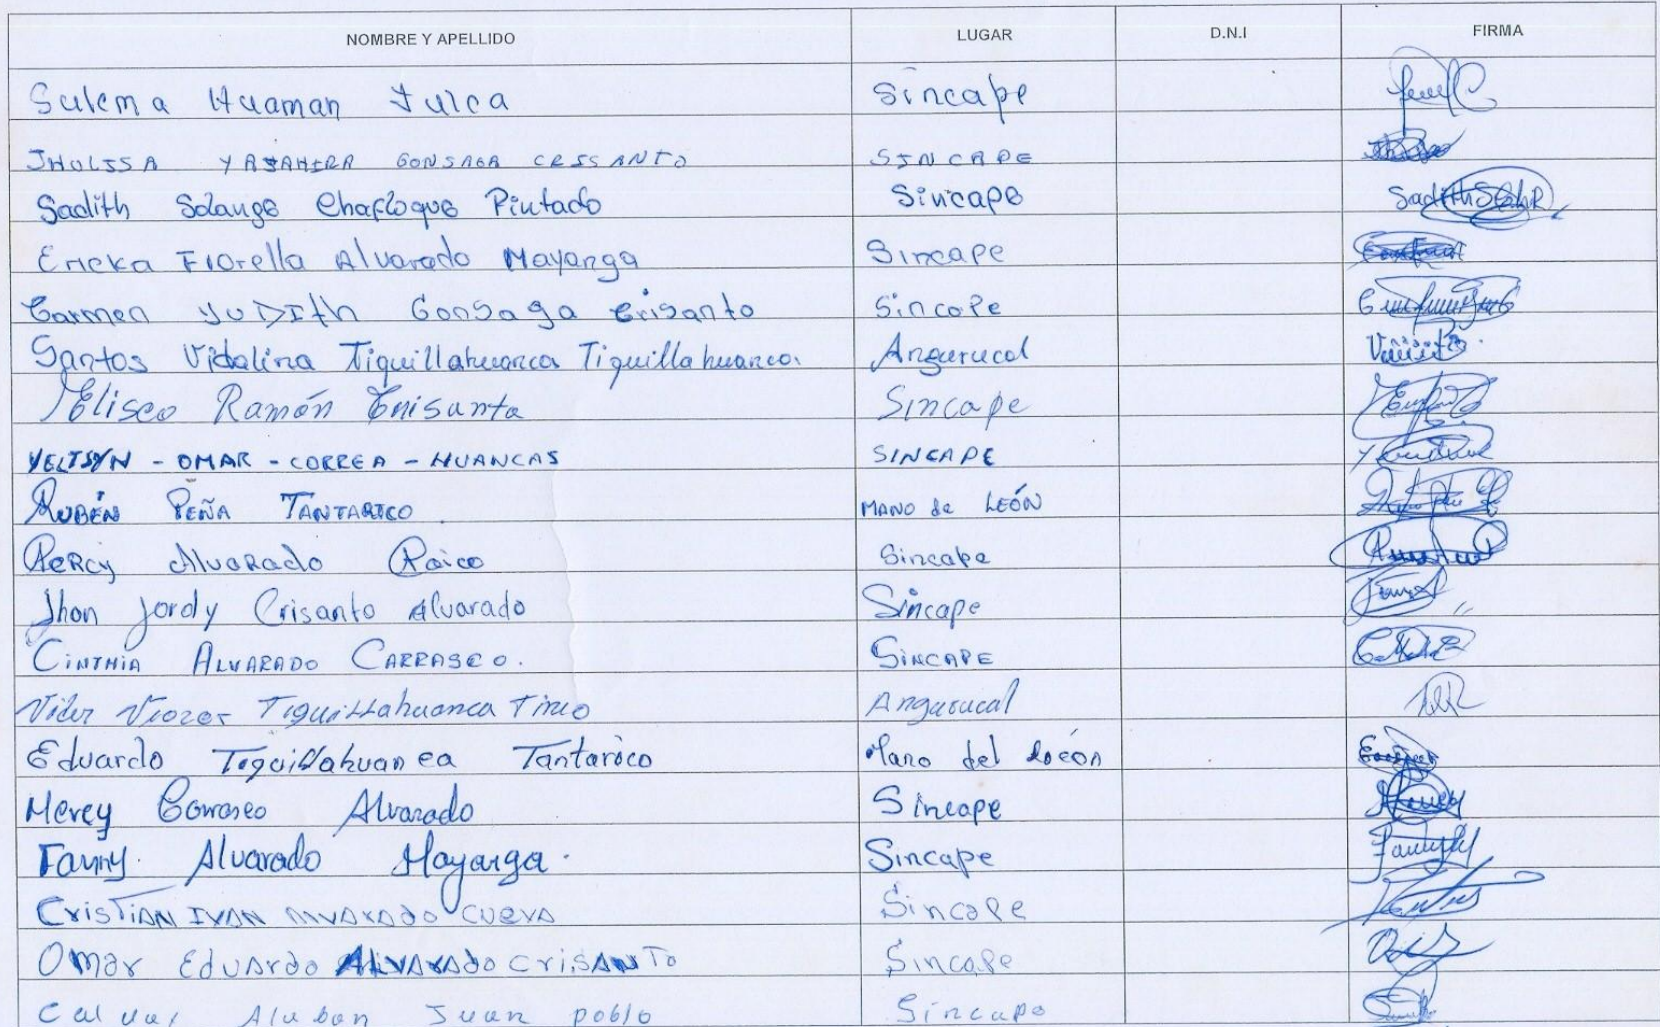 NOMBRE Y APELLIDO LUGAR D.N.I FIRMA
Sulema Huaman Julca Sincape
JHULISSA YAJAHIRA GONSAGA CRISSANTO SINCAPE
Sadith Solange Chafloque Pintado Sincape Sadith
Ericka Fiorella Alvarado Mayanga Sincape
Carmen YUDITH Gonsaga Crisanto Sincape
Santos Vidalina Tiquillahuanca Tiquillahuanca. Angurucal
Eliseo Ramón Crisanta Sincape
YELTSYN - OMAR - CORREA - HUANCAS SINCAPE
RUBÉN PEÑA TANTARICO MANO de LEÓN
PERCY Alvarado Raico Sincape
Jhon Jordy Crisanto Alvarado Sincape
CINTHIA ALVARADO CARRASCO. SINCAPE
Tiquillahuanca Angurucal
Eduardo Tiquillahuanca Tantarico Mano del
Mercy Carrasco Alvarado Sincape
Fanny. Alvarado Mayanga. Sincape
CRISTIAN IVAN ALVARADO CUEVA Sincape
Omar Eduardo ALVARADO CRISANTO Sincape
Juan pablo Sincape